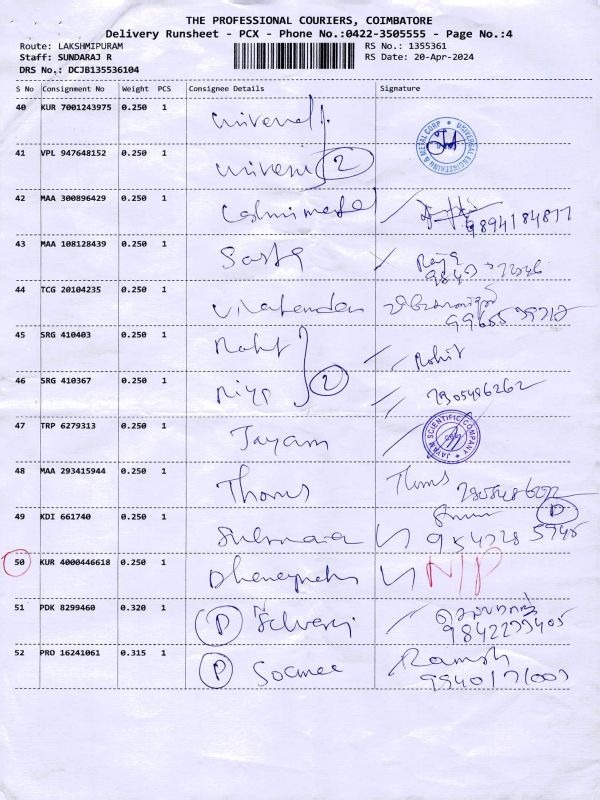 THE PROFESSIONAL COURIERS, COIMBATORE
Delivery Runsheet - PCX - Phone No.:0422-3505555 - Page No.:4
Route: LAKSHMIPURAM RS No.: 1355361
Staff: SUNDARAJ R RS Date: 20-Apr-2024
DRS No.: DCJB135536104
S No Consignment No Weight PCS Consignee Details Signature
40 KUR 7001243975 0.250 1
UNIVERSAL ENGINEERING & METAL CORP
41 VPL 947648152 0.250 1 2
42 MAA 300896429 0.250 1
9894184877
43 MAA 108128439 0.250 1 Raja
44 TCG 20104235 0.250 1
45 SRG 410403 0.250 1 Rohit Rohit
46 SRG 410367 0.250 1 Riya 2
7305486262
47 TRP 6279313 0.250 1 Jayam
JAYAM SCIENTIFIC COMPANY
48 MAA 293415944 0.250 1 Thoms Thoms
49 KDI 661740 0.250 1 D
50 KUR 4000446618 0.250 1 N/P
51 PDK 8299460 0.320 1 D Selveraj
52 PRO 16241061 0.315 1 D Ramsh